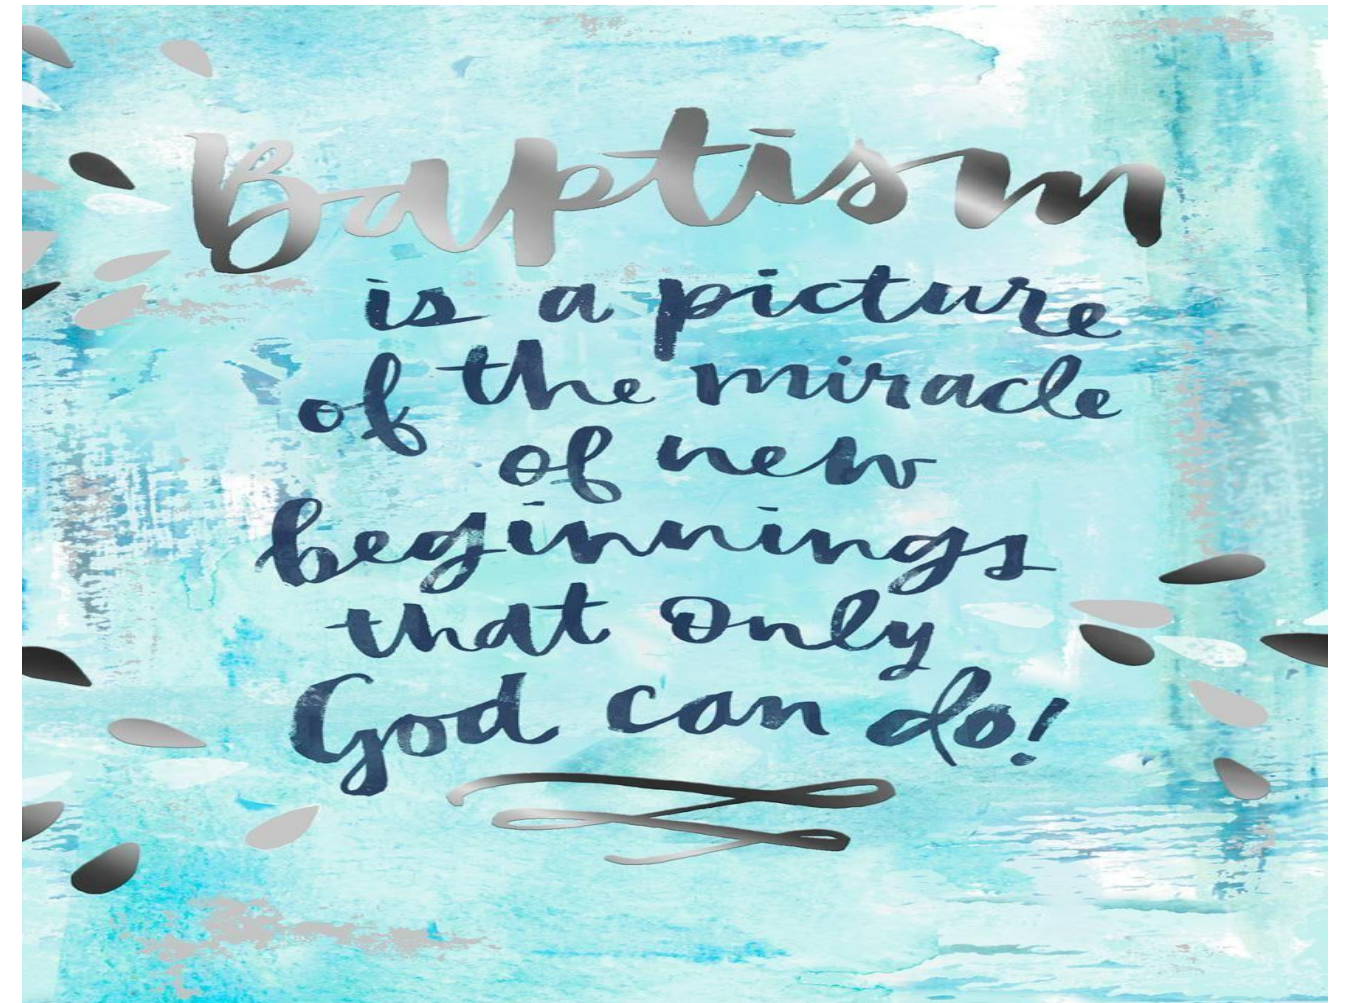 Baptism
is a picture
of the miracle
of new
beginnings
that only
God can do!